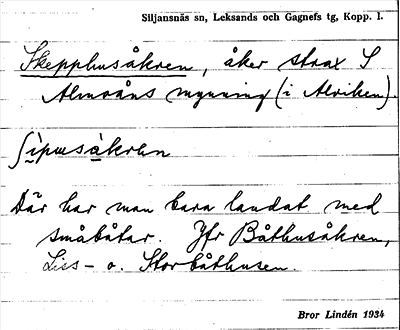 Siljansnäs sn, Leksands och Gagnefs tg, Kopp. l.
Skepphusåkren, åker strax S
Almoåns mynning (i Alviken).
ʃìpusàkrän
Där har man bara landat med
småbåtar. Jfr Båthusåkren,
Liss- o. Storbåthusen.
Bror Lindén 1934